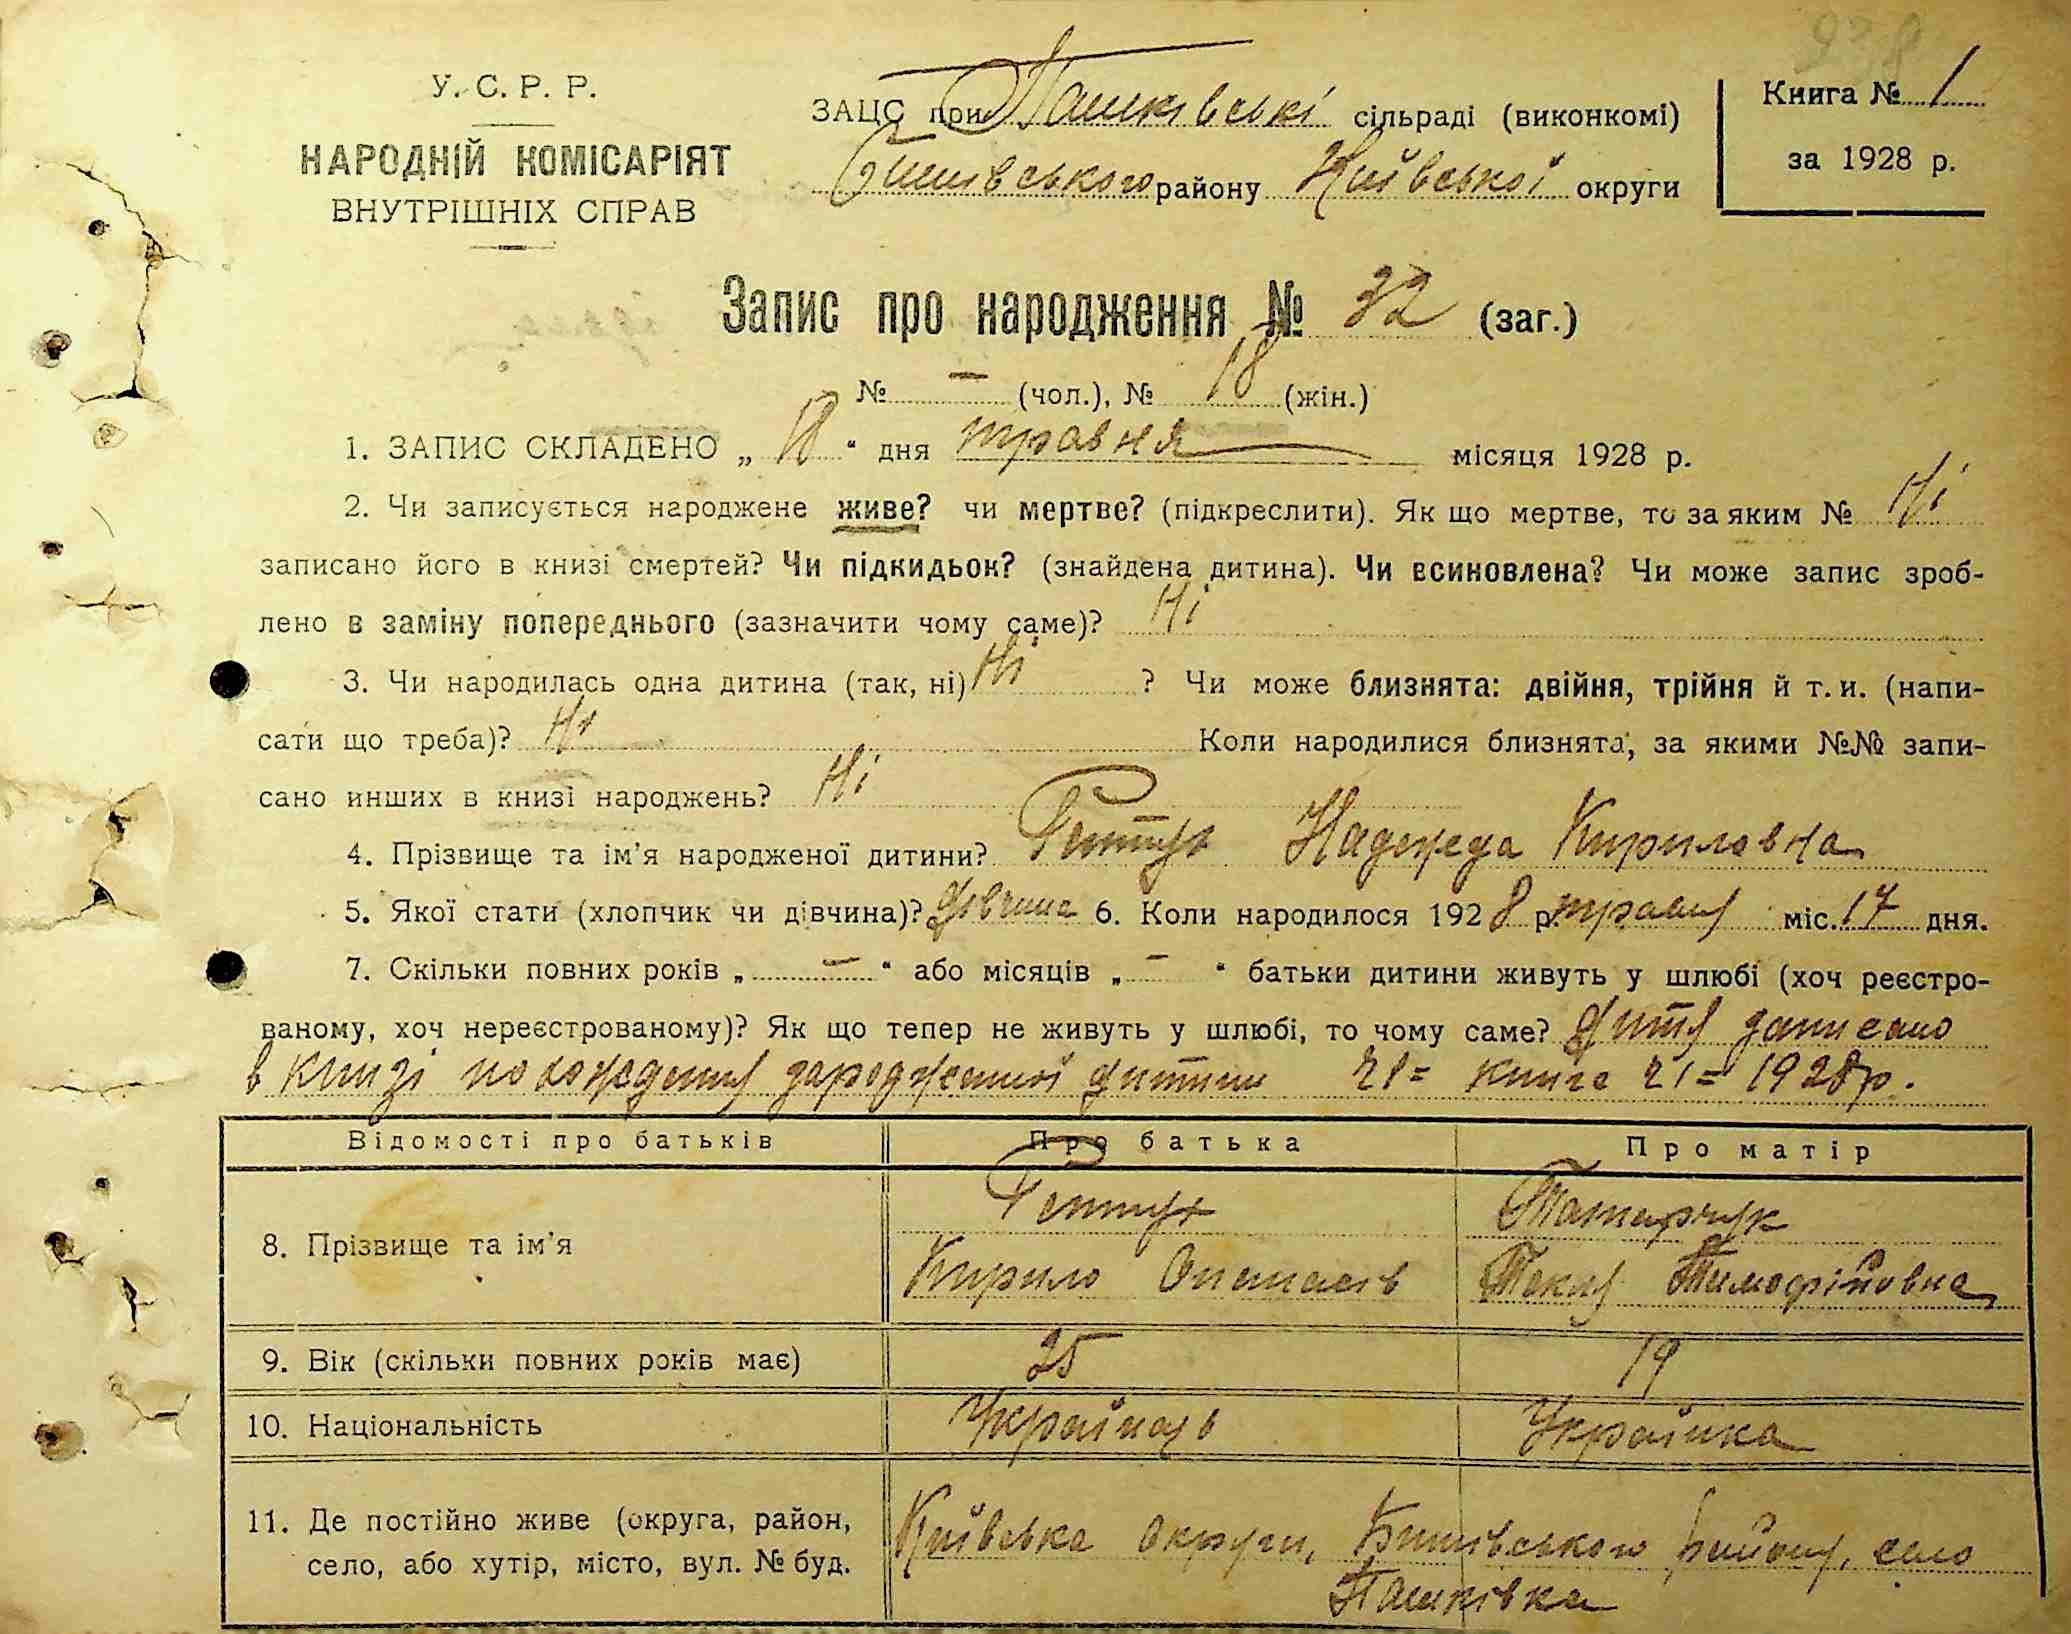 938
У. С. Р. Р.
НАРОДНІЙ КОМІСАРІЯТ
ВНУТРІШНІХ СПРАВ
ЗАЦС при Пашківські сільраді (виконкомі)
Бишівського району Київської округи
Книга № 1
за 1928 р.
Запис про народження № 32 (заг.)
№ — (чол.), № 18 (жін.)
1. ЗАПИС СКЛАДЕНО „ 18 “ дня травня місяця 1928 р.
2. Чи записується народжене живе? чи мертве? (підкреслити). Як що мертве, то за яким № Ні
записано його в книзі смертей? Чи підкидьок? (знайдена дитина). Чи всиновлена? Чи може запис зроб-
лено в заміну попереднього (зазначити чому саме)? Ні
3. Чи народилась одна дитина (так, ні) Ні ? Чи може близнята: двійня, трійня й т. и. (напи-
сати що треба)? Ні Коли народилися близнята, за якими №№ запи-
сано инших в книзі народжень? Ні
4. Прізвище та ім'я народженої дитини? Гетпух Надежда Кириловна
5. Якої стати (хлопчик чи дівчина)? дівчина 6. Коли народилося 1928 р. травня міс. 17 дня.
7. Скільки повних років „ — “ або місяців „ — “ батьки дитини живуть у шлюбі (хоч реєстро-
ваному, хоч нереєстрованому)? Як що тепер не живуть у шлюбі, то чому саме? Дитя записано
в книзі походження зародженної дитини книга 1928 р.
Відомості про батьків Про батька Про матір
8. Прізвище та ім'я
Татарчук
Кирило Текля Тимофіївна
9. Вік (скільки повних років має) 25 19
10. Національність Українець Українка
11. Де постійно живе (округа, район,
село, або хутір, місто, вул. № буд.
Київська округи, Бишівського району, село
Пашківка